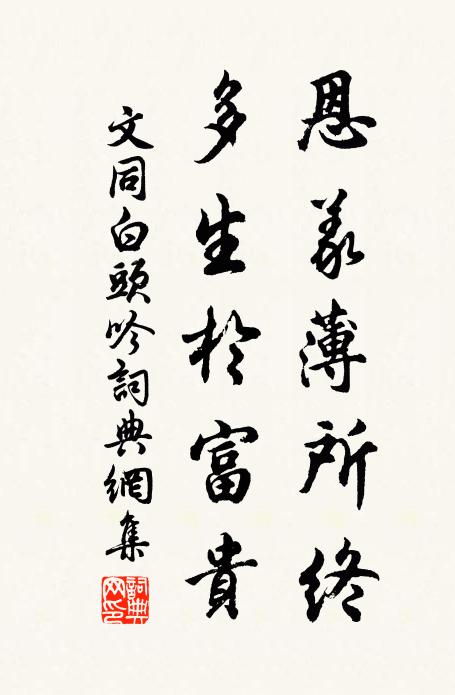 恩義薄所終
多生於富貴
文同白頭吟詞典網集
詞典網印